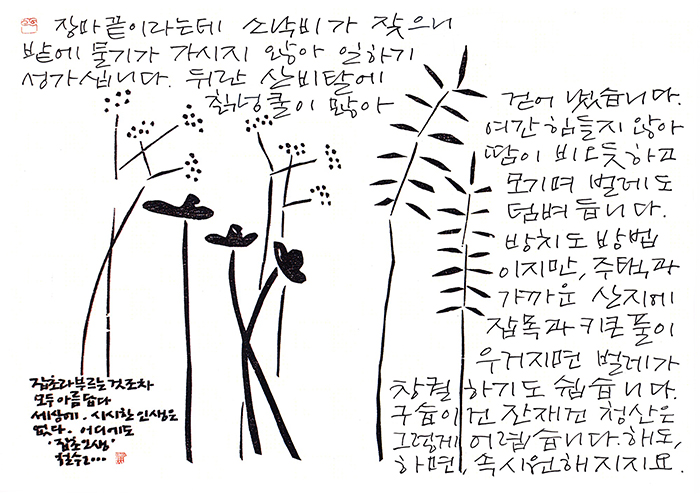 장마끝이라는데 소낙비가 잦으니
밭에 물기가 가시지 않아 일하기
성가십니다. 뒤란 산비탈에
칡넝쿨이 많아
걷어 냈습니다.
여간 힘들지 않아
땀이 비오듯하고
모기며 벌레도
덤벼 듭니다.
방치도 방법
이지만, 주택과
가까운 산지에
잡목과 키큰풀이
우거지면 벌레가
창궐 하기도 쉽습니다.
구습이건 잔재건 청산은
그렇게 어렵습니다. 해도,
하면, 속 시원해 지지요.
잡초라 부르는것조차
모두 아름답다
세상에. 시시한 인생은
없다. 어디에도
'잡초인생'
철수